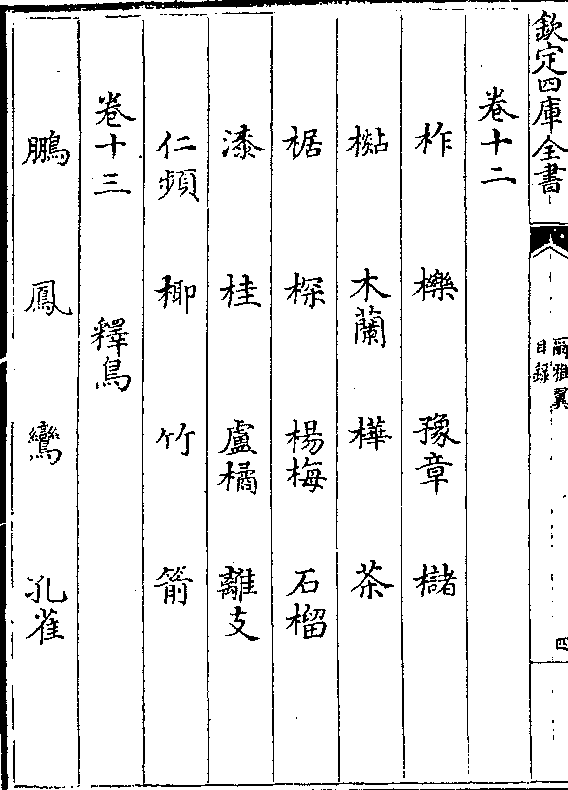 欽定四庫全書
爾雅翼
目錄
四
卷十二
柞 櫟 豫章 櫧
木蘭 樺 茶
椐 棎 楊梅 石榴
漆 桂 盧橘 離支
仁頻 椰 竹 箭
卷十三 釋鳥
鵬 鳳 鸞 孔雀